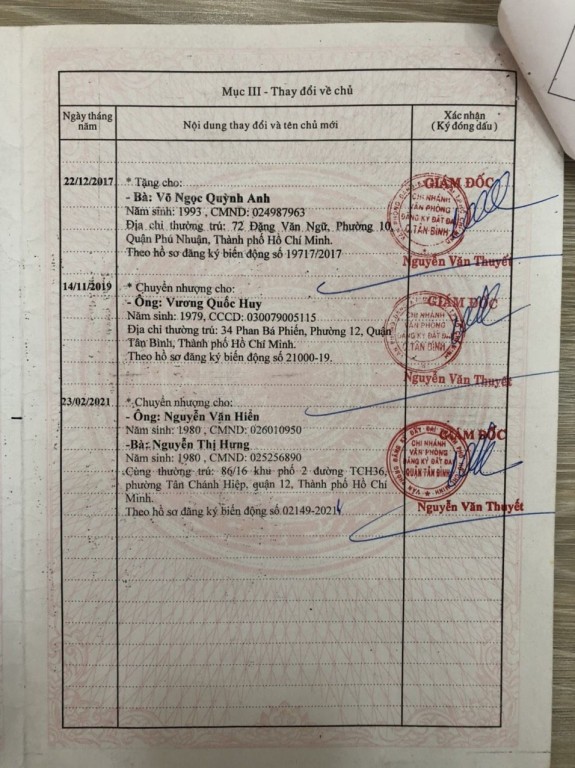 Mục III - Thay đổi về chủ
Ngày tháng năm
Nội dung thay đổi và tên chủ mới
Xác nhận
( Ký đóng dấu)
22/12/2017
* Tặng cho:
- Bà: Võ Ngọc Quỳnh Anh
Năm sinh: 1993 , CMND: 024987963
Địa chỉ thường trú: 72 Đặng Văn Ngữ, Phường 10,
Quận Phú Nhuận, Thành phố Hồ Chí Minh.
Theo hồ sơ đăng ký biến động số 19717/2017
GIÁM ĐỐC
CHI NHÁNH
VĂN PHÒNG
ĐĂNG KÝ ĐẤT ĐAI
Q.TÂN BÌNH
Nguyễn Văn Thuyết
14/11/2019
* Chuyển nhượng cho:
- Ông: Vương Quốc Huy
Năm sinh: 1979, CCCD: 030079005115
Địa chỉ thường trú: 34 Phan Bá Phiến, Phường 12, Quận
Tân Bình, Thành phố Hồ Chí Minh.
Theo hồ sơ đăng ký biến động số 21000-19.
GIÁM ĐỐC
CHI NHÁNH
VĂN PHÒNG
ĐĂNG KÝ ĐẤT ĐAI
TÂN BÌNH
Nguyễn Văn Thuyết
23/02/2021
* Chuyển nhượng cho:
- Ông: Nguyễn Văn Hiển
Năm sinh: 1980 , CMND: 026010950
-Bà: Nguyễn Thị Hưng
Năm sinh: 1980, CMND: 025256890
Cùng thường trú: 86/16 khu phố 2 đường TCH36,
phường Tân Chánh Hiệp, quận 12, Thành phố Hồ Chí
Minh.
Theo hồ sơ đăng ký biến động số 02149-2021
GIÁM ĐỐC
CHI NHÁNH
VĂN PHÒNG
ĐĂNG KÝ ĐẤT ĐAI
QUẬN TÂN BÌNH
Nguyễn Văn Thuyết